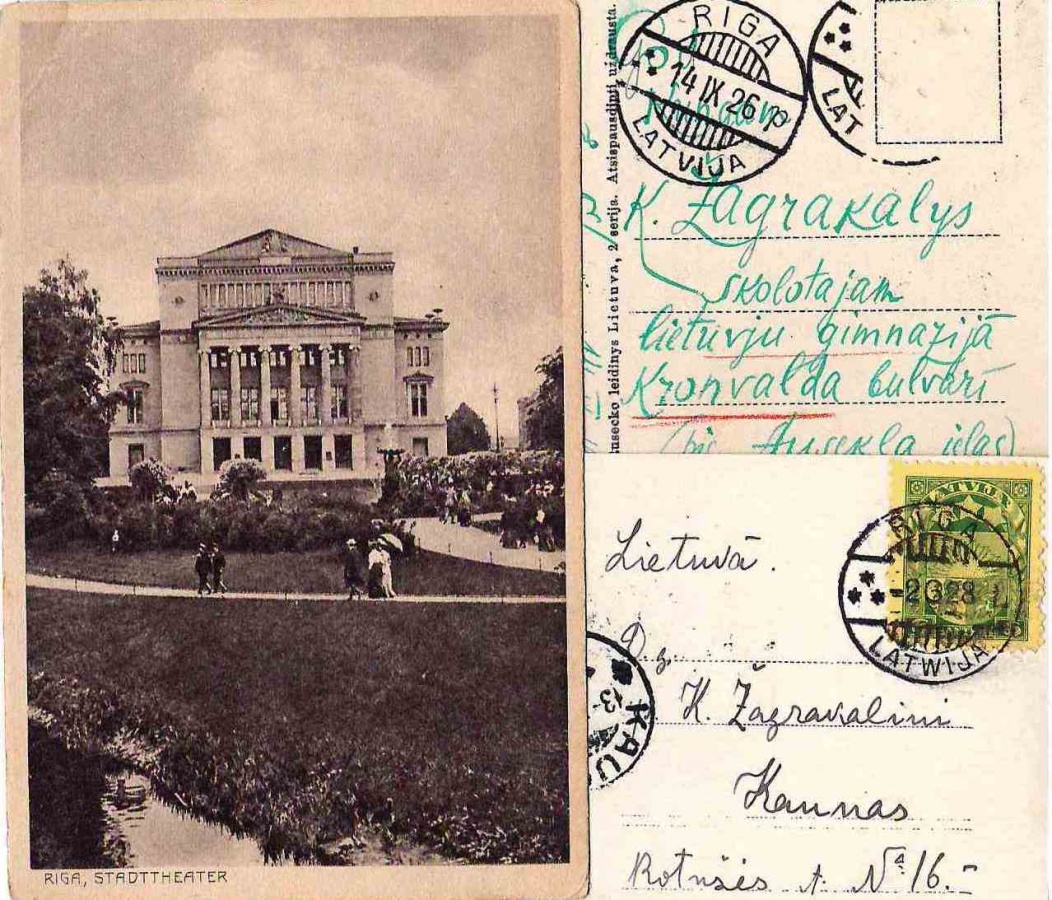 RIGA, STADTTHEATER
usecko leidinys Lietuva, 2 serija. Atsispausdinti uždrausta.
RIGA
14 IX 26
LATVIJA
LAT
K. Žagrakalys
skolotajam
lietuvju gimnazijā
Kronvalda bulvarī
(pie Ausekla ielas)
LATVIJA
RIGA
LATWIJA
Lietuvā.
K. Žagrakalini
KAU
Kaunas
Rotušės a. Nᵃ 16.-